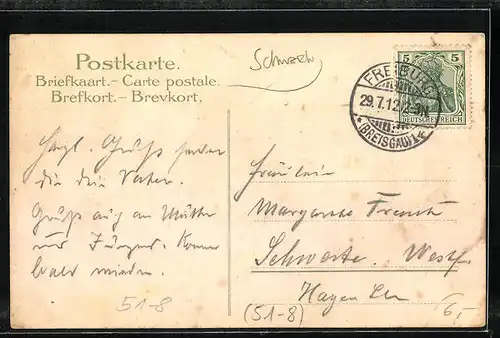 Postkarte.
Briefkaart.- Carte postale.
Brefkort. - Brevkort.
5 5
DEUTSCHES REICH
FREIBURG
29.7.12.
* (BREISGAU) 1 *
Herzl. Gruß sendet
dir dein Vater.
Gruß auch an Mutter
und
bald wieder.
Fräulein
Margarete
Schwerte. Westf.
Hagen
51-8
(51-8)
6,-